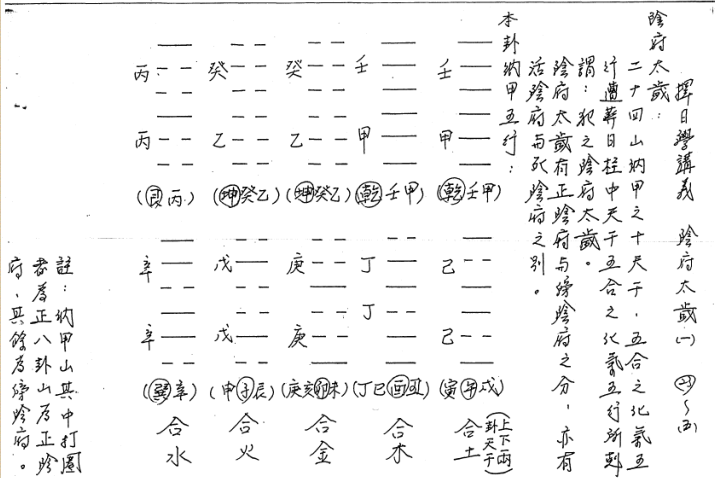 擇日學講義　陰府太歲(一)　㈣～㈤
陰府太歲：
二十四山納甲之十天干，五合之化氣五
行遭葬日柱中天干五合之化氣五行所剋
謂：犯之陰府太歲。
陰府太歲有正陰府與傍陰府之分，亦有
活陰府與死陰府之別。
本卦納甲五行：
壬
甲
(乾壬甲)
己
己
(寅午戌)
合土
(上下兩卦天干)
壬
甲
(乾壬甲)
丁
丁
(丁巳酉丑)
合木
癸
乙
(坤癸乙)
庚
庚
(庚亥卯未)
合金
癸
乙
(坤癸乙)
戊
戊
(申子辰)
合火
丙
丙
(艮丙)
辛
辛
(巽辛)
合水
註：納甲山其中打圈
者為正八卦山為正陰
府，其餘為傍陰府。